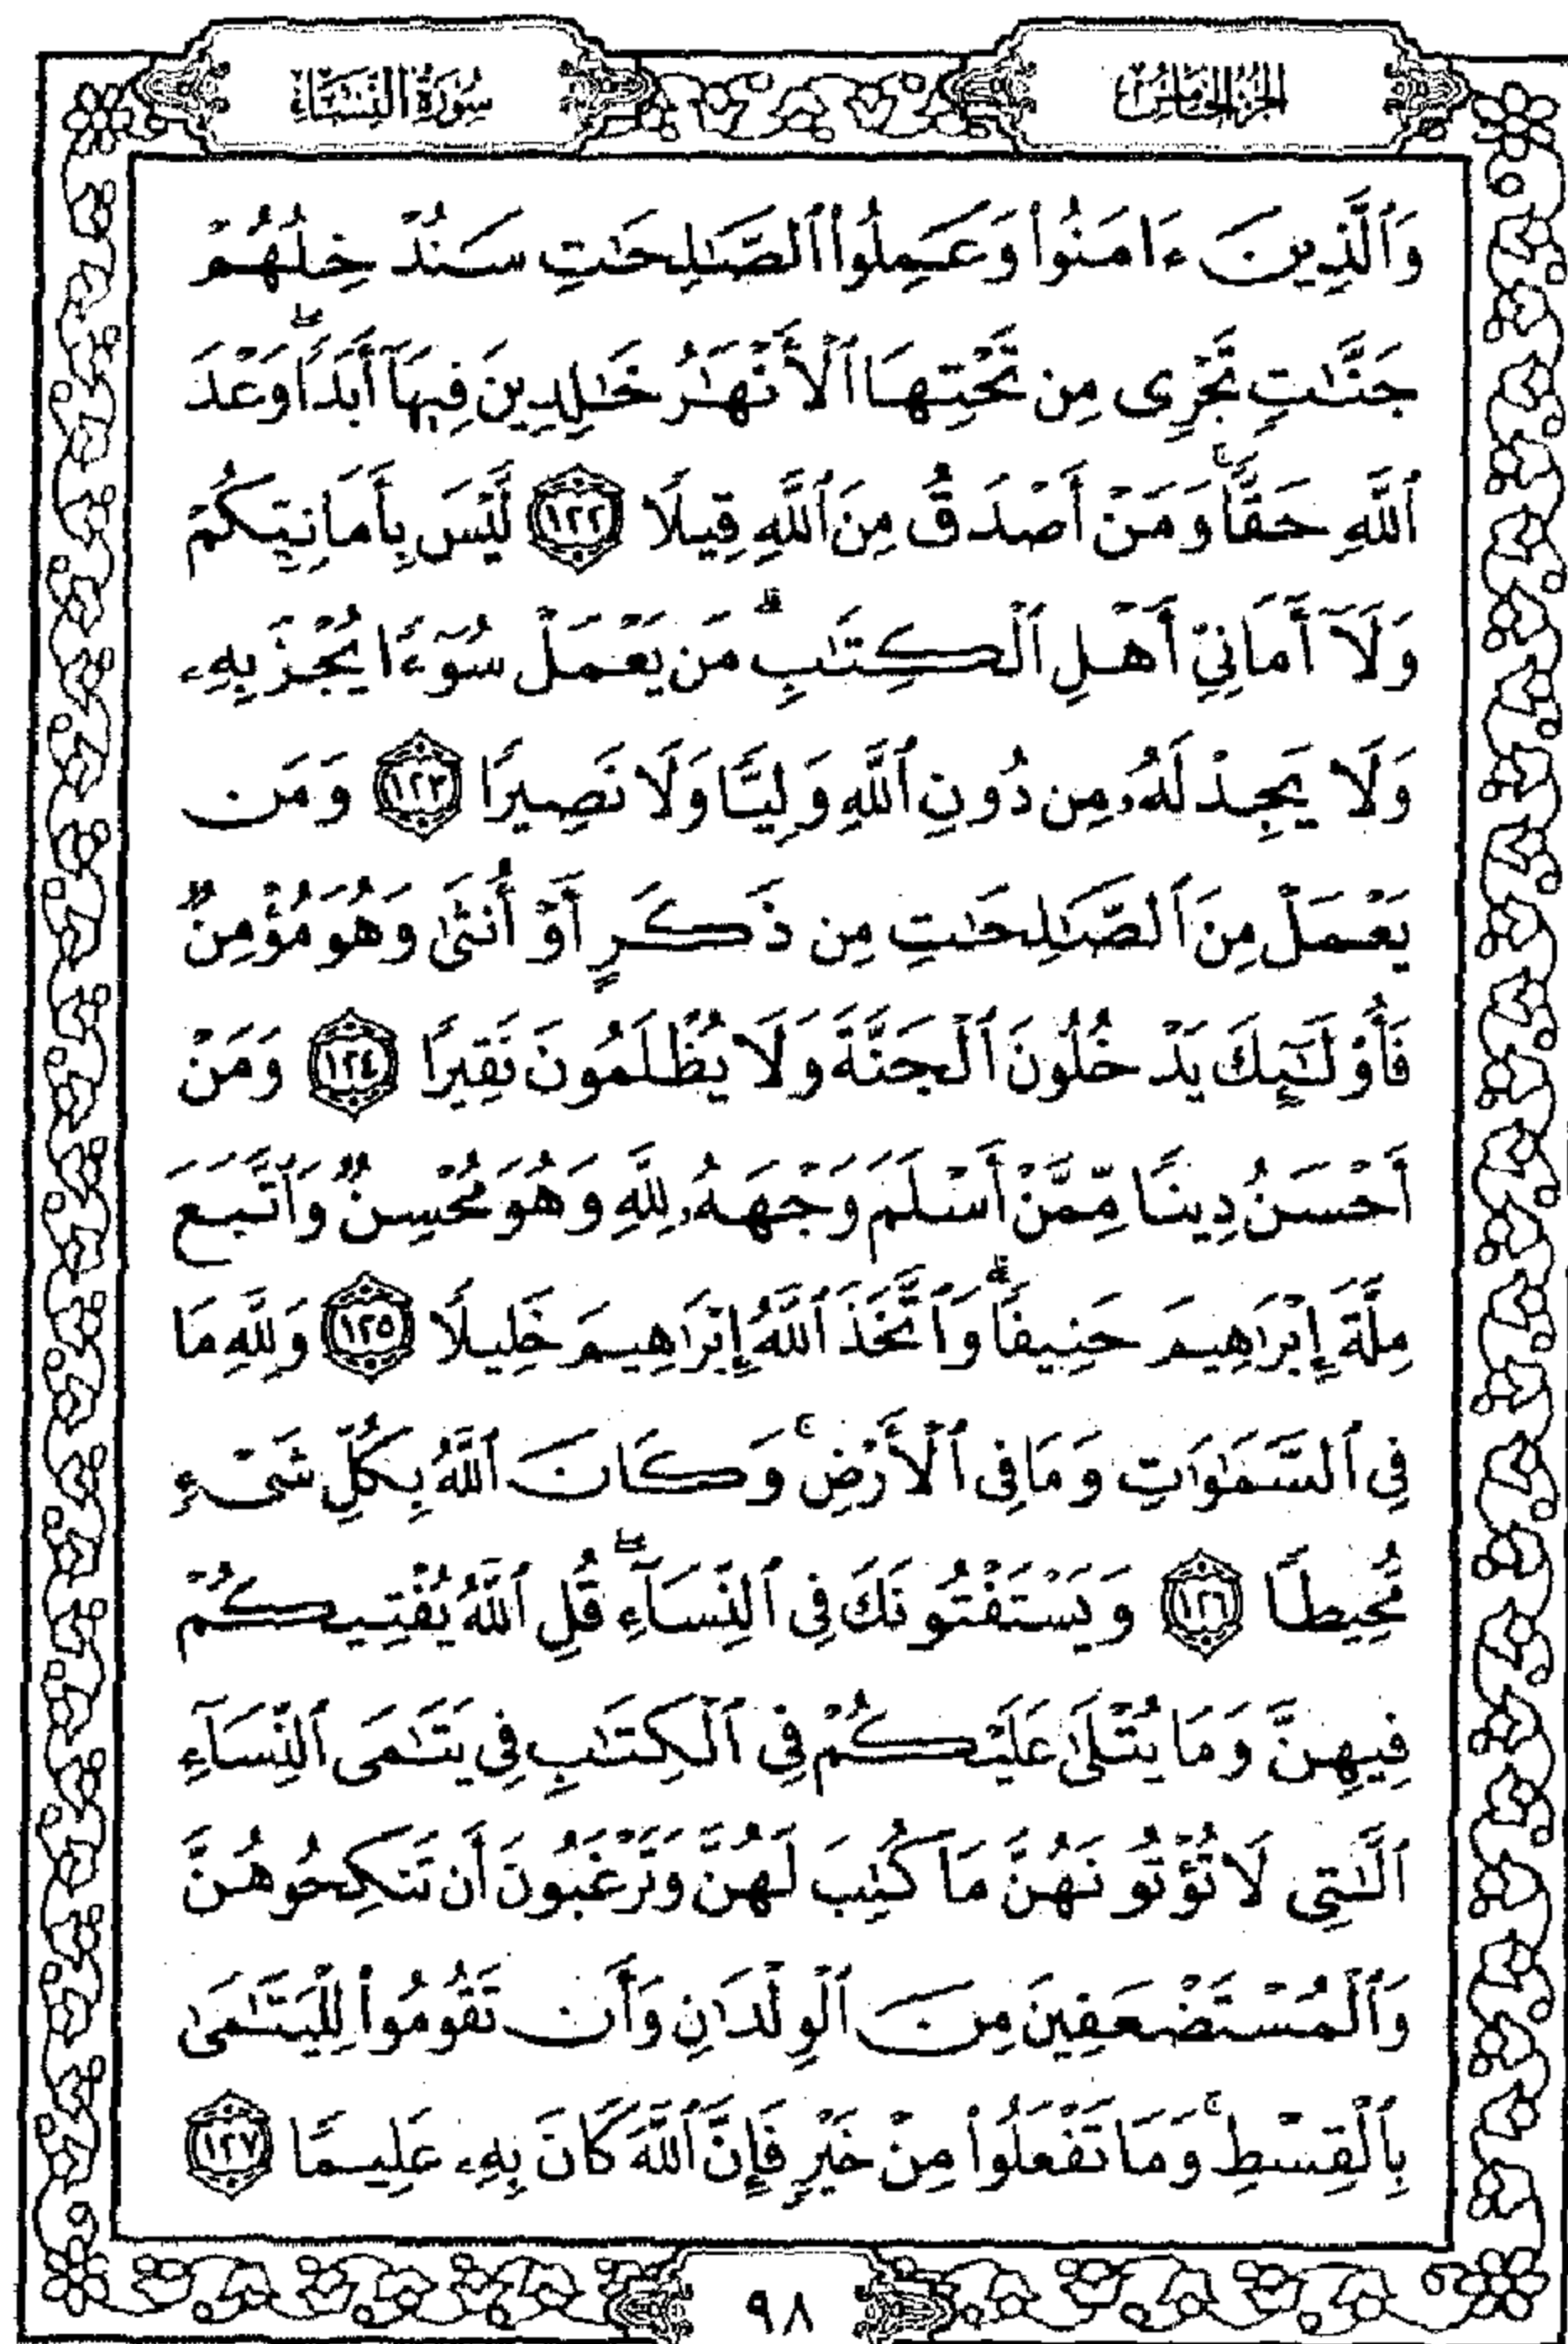 الجزء الخامس
سورة النساء
وَٱلَّذِينَ ءَامَنُوا۟ وَعَمِلُوا۟ ٱلصَّـٰلِحَـٰتِ سَنُدْخِلُهُمْ
جَنَّـٰتٍ تَجْرِى مِن تَحْتِهَا ٱلْأَنْهَـٰرُ خَـٰلِدِينَ فِيهَآ أَبَدًا ۖ وَعْدَ
ٱللَّهِ حَقًّا ۚ وَمَنْ أَصْدَقُ مِنَ ٱللَّهِ قِيلًا ١٢٢ لَّيْسَ بِأَمَانِيِّكُمْ
وَلَآ أَمَانِىِّ أَهْلِ ٱلْكِتَـٰبِ ۗ مَن يَعْمَلْ سُوٓءًا يُجْزَ بِهِۦ
وَلَا يَجِدْ لَهُۥ مِن دُونِ ٱللَّهِ وَلِيًّا وَلَا نَصِيرًا ١٢٣ وَمَن
يَعْمَلْ مِنَ ٱلصَّـٰلِحَـٰتِ مِن ذَكَرٍ أَوْ أُنثَىٰ وَهُوَ مُؤْمِنٌ
فَأُو۟لَـٰٓئِكَ يَدْخُلُونَ ٱلْجَنَّةَ وَلَا يُظْلَمُونَ نَقِيرًا ١٢٤ وَمَنْ
أَحْسَنُ دِينًا مِّمَّنْ أَسْلَمَ وَجْهَهُۥ لِلَّهِ وَهُوَ مُحْسِنٌ وَٱتَّبَعَ
مِلَّةَ إِبْرَٰهِيمَ حَنِيفًا ۗ وَٱتَّخَذَ ٱللَّهُ إِبْرَٰهِيمَ خَلِيلًا ١٢٥ وَلِلَّهِ مَا
فِى ٱلسَّمَـٰوَٰتِ وَمَا فِى ٱلْأَرْضِ ۚ وَكَانَ ٱللَّهُ بِكُلِّ شَىْءٍ
مُّحِيطًا ١٢٦ وَيَسْتَفْتُونَكَ فِى ٱلنِّسَآءِ ۖ قُلِ ٱللَّهُ يُفْتِيكُمْ
فِيهِنَّ وَمَا يُتْلَىٰ عَلَيْكُمْ فِى ٱلْكِتَـٰبِ فِى يَتَـٰمَى ٱلنِّسَآءِ
ٱلَّـٰتِى لَا تُؤْتُونَهُنَّ مَا كُتِبَ لَهُنَّ وَتَرْغَبُونَ أَن تَنكِحُوهُنَّ
وَٱلْمُسْتَضْعَفِينَ مِنَ ٱلْوِلْدَٰنِ وَأَن تَقُومُوا۟ لِلْيَتَـٰمَىٰ
بِٱلْقِسْطِ ۚ وَمَا تَفْعَلُوا۟ مِنْ خَيْرٍ فَإِنَّ ٱللَّهَ كَانَ بِهِۦ عَلِيمًا ١٢٧
٩٨